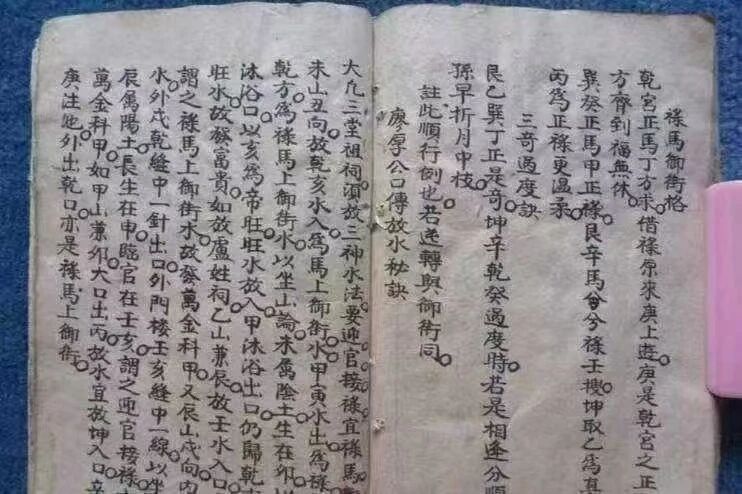 祿馬御街格
乾宮正馬丁方求借祿原來庚上遊庚是乾宮之正
方齊到福無休
巽癸正馬甲正祿艮辛馬兮祿壬搜坤取乙為真
丙為正祿更溫柔
三奇過度訣
艮乙巽丁正是奇坤辛乾癸過度時若是相逢分順
孫早折月中枝
註此順行倒也若逆轉與御街同
廖厚公口傳放水秘訣
大凢三堂祖祠湏放三神水法要迎官接祿宜祿馬
未山丑向放乾亥水入為馬上御街水甲寅水出為祿
乾方為祿馬上御街水以坐山論未屬陰土生在卯以
沐浴口以亥為帝旺旺水放入甲沐浴出口仍歸乾
旺水故發富貴如放盧姓祠乙山兼辰放壬水入口
謂之祿馬上御街水故發萬金科甲又辰山戍向內
水外戍乾縫中一針出口外門楼壬亥縫中一線以坐
辰屬陽土長生在申臨官在壬亥謂之迎官接祿
萬金科甲如甲山兼卯大口出丙放水宜放坤入口辛
庚注外出乾口亦是祿馬上御街